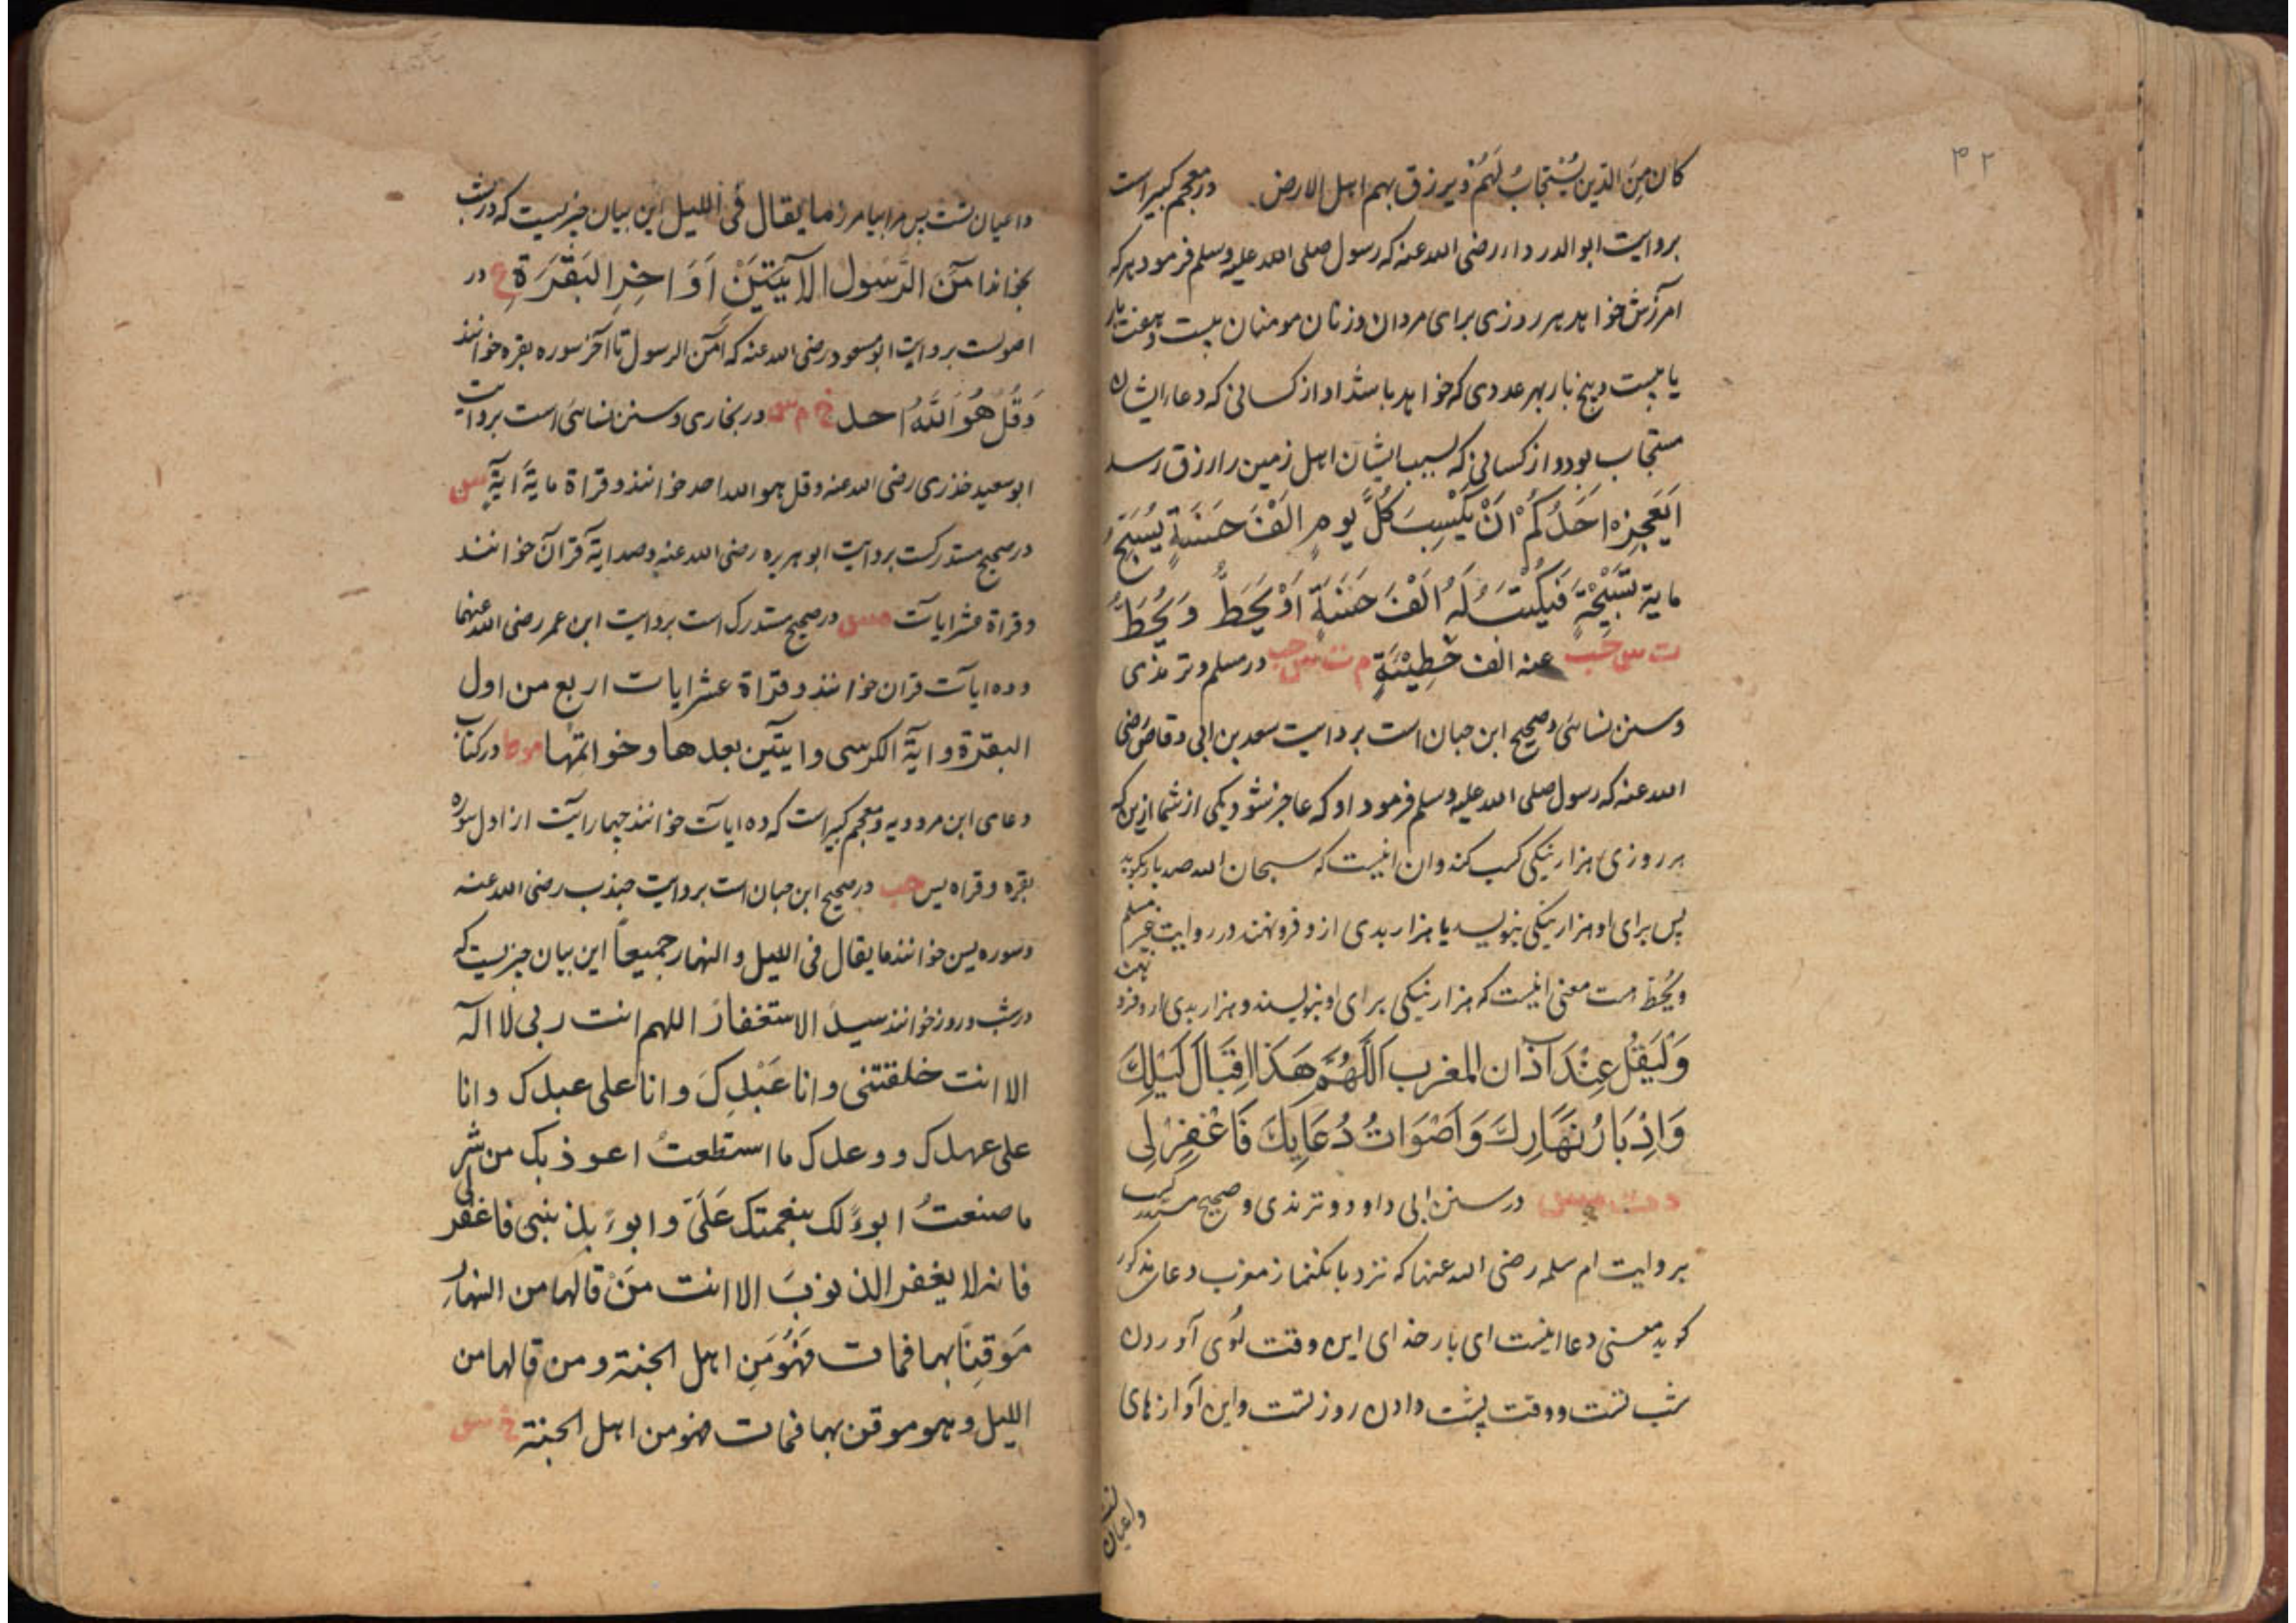 ۴۲
كان مِنَ الذين يُسْتجابُ لَهُمْ ويرزق بهم اهل الارض در معجم كبير است
بروايت ابوالدرداء رضى الله عنه كه رسول صلى الله عليه وسلم فرمود هر كه
آمرزش خواهد هر روزى براى مردان وزنان مومنان بيست وهفت بار
يا بيست وپنج بار بهر عددى كه خواهد باشد او از كسانى كه دعاء ايشان
مستجاب بود و از كسانى كه بسبب ايشان اهل زمين را رزق رسد
اَيَعْجِزُ اَحَدُكُمْ اَنْ يَكْسِبَ كُلَّ يومٍ اَلْفَ حَسَنَةٍ يُسَبِّحُ
ماية تَسْبِيْحَةٍ فَيُكْتَبُ لَهُ اَلْفُ حَسَنَةٍ اَوْ يُحَطُّ وَيُحَطُّ
ت س حب عنه الف خَطِيْئَةٍ م ت س حب در مسلم و ترمذى
وسنن نسائى وصحيح ابن حبان است بروايت سعد بن ابى وقاص رضى
الله عنه كه رسول صلى الله عليه وسلم فرمود او كه عاجز نشود يكى از شما ازين كه
هر روزى هزار نيكى كسب كند وان اينست كه سبحان الله صد بار بگويد
پس براى او هزار نيكى بنويسد يا هزار بدى ازو فرو نهند در روايت غير مسلم
ويُحَطّ است معنى اينست كه هزار نيكى براى او بنويسند و هزار بدى ازو فرو نهند
وَلْيَقُلْ عِنْدَ اَذَان المغرب اَللّٰهُمَّ هَذَا اِقْبَالُ لَيْلِكَ
وَاِدْبَارُ نَهَارِكَ وَاَصْوَاتُ دُعَايِكَ فَاغْفِرْ لِى
د ت مس در سنن ابى داود و ترمذى و صحيح مستدرك
بروايت ام سلمه رضى الله عنها كه نزد بانگ نماز مغرب دعاء مذكور
گويد معنى دعا اينست اى بار خداى اين وقت روى آوردن
شب تست و وقت پشت دادن روز تست واين آوازهاى
داعيان تست
داعيان تست پس مرا بيامرز ما يقال فى الليل اين بيان چيزيست كه در شب
بخوانند اٰمَنَ الرَّسُول الاٰيَتَيْنِ اَوَاخِرِ البَقَرَةِ ع در
اصولست بروايت ابو مسعود رضى الله عنه كه آمن الرسول تا آخر سوره بقره خوانند
وَقُلْ هُوَ اللّٰهُ احد خ م س در بخارى وسنن نسائى است بروايت
ابو سعيد خدرى رضى الله عنه وقل هو الله احد خوانند وقراة ماية اية مس
در صحيح مستدركست بروايت ابو هريره رضى الله عنه وصد اية قرآن خوانند
وقراة عشر ايات مس در صحيح مستدرك است بروايت ابن عمر رضى الله عنهما
وده ايات قران خوانند وقراة عشر ايات اربع من اول
البقرة واية الكرسى وايتين بعدها وخواتمها موط در كتاب
دعاى ابن مردويه ومعجم كبير است كه ده ايات خوانند چهار آيت از اول سوره
بقره وقراه يس حب در صحيح ابن حبان است بروايت جندب رضى الله عنه
وسوره يس خوانند ما يقال فى الليل والنهار جميعاً اين بيان چيزيست كه
در شب و روز خوانند سيد الاستغفار اللهم انت ربى لا اله
الا انت خلقتنى وانا عَبْدِكَ وانا على عبدك وانا
على عهدك ووعدك ما استطعتُ اعوذ بك من شر
ما صنعتُ ابوءُ لك بنعمتك عَلَىَّ وابوءُ بذنبى فاغفر لى
فانه لا يغفر الذنوبَ الا انت مَنْ قالها من النهارِ
مَوقِناً بها فمات فَهُوَ مِنَ اهل الجنة ومن قالها من
الليل وهو موقن بها فمات فهو من اهل الجنة خ س